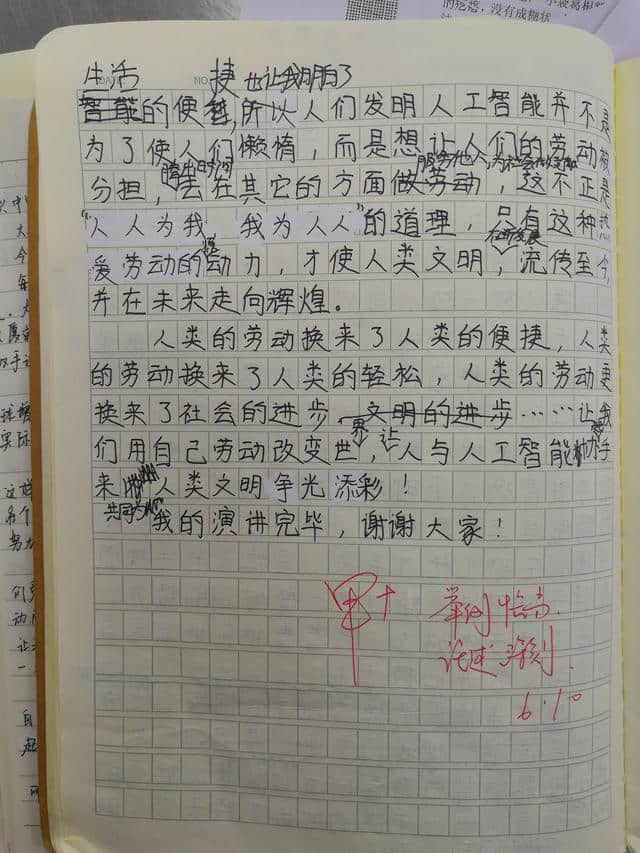 的疙瘩，没有成糊状
生活 捷 也让我明白了
智能的便利，所以人们发明人工智能并不是
为了使人们懒惰，而是想让人们的劳动被
腾出时间 服务他人，为社会
分担，去在其它的方面做劳动，这不正是
“人人为我 我为人人”的道理，只有这种热
在所发展
爱劳动的动力，才使人类文明，流传至今，
并在未来走向辉煌。
人类的劳动换来了人类的便捷，人类
的劳动换来了人类的轻松，人类的劳动更
换来了社会的进步，文明的进步……让我
们用自己劳动改变世界，让人与人工智能协手
来 人类文明争光添彩！
共同为
我的演讲完毕，谢谢大家！
甲+ 举例恰当
论述深刻
6.10